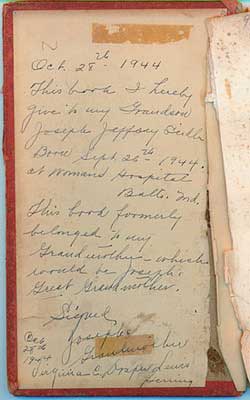 Oct. 28th 1944
This book I hereby
give to my Grandson
Joseph Jeffery
Born Sept. 26th 1944.
at Womans Hospital
Balto. Md.
This book formerly
belonged to my
Grandmother - which
would be Joseph's
Great Grandmother.
Signed
Joseph's
Grandmother
Oct.
28th
1944
Virginia C. Draper